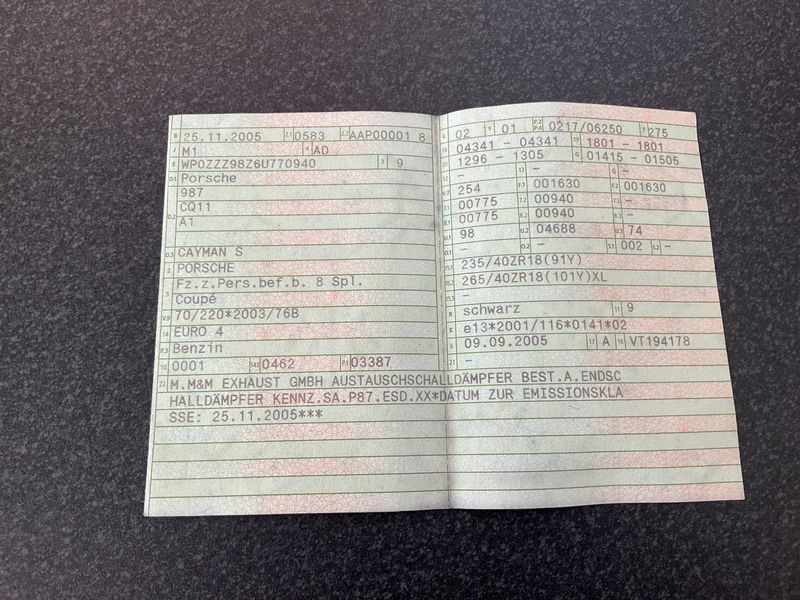 B 25.11.2005 2.1 0583 2.2 AAP00001 8
J M1 4 AD
E WP0ZZZ98Z6U770940 3 9
D.1 Porsche
987
D.2 CQ11
A1
D.3 CAYMAN S
2 PORSCHE
5 Fz.z.Pers.bef.b. 8 Spl.
Coupé
V.9 70/220*2003/76B
14 EURO 4
P.3 Benzin
10 0001 14.1 0462 P.1 03387
L 02 9 01 P.2 P.4 0217/06250 T 275
18 04341 - 04341 19 1801 - 1801
20 1296 - 1305 G 01415 - 01505
12 - 13 - Q -
V.7 254 F.1 001630 F.2 001630
7.1 00775 7.2 00940 7.3 -
8.1 00775 8.2 00940 8.3 -
U.1 98 U.2 04688 U.3 74
O.1 - O.2 - S.1 002 S.2 -
15.1 235/40ZR18(91Y)
15.2 265/40ZR18(101Y)XL
15.3 -
R schwarz 11 9
K e13*2001/116*0141*02
6 09.09.2005 17 A 16 VT194178
21 -
22 M.M&M EXHAUST GMBH AUSTAUSCHSCHALLDÄMPFER BEST.A.ENDSC
HALLDÄMPFER KENNZ.SA.P87.ESD.XX*DATUM ZUR EMISSIONSKLA
SSE: 25.11.2005***